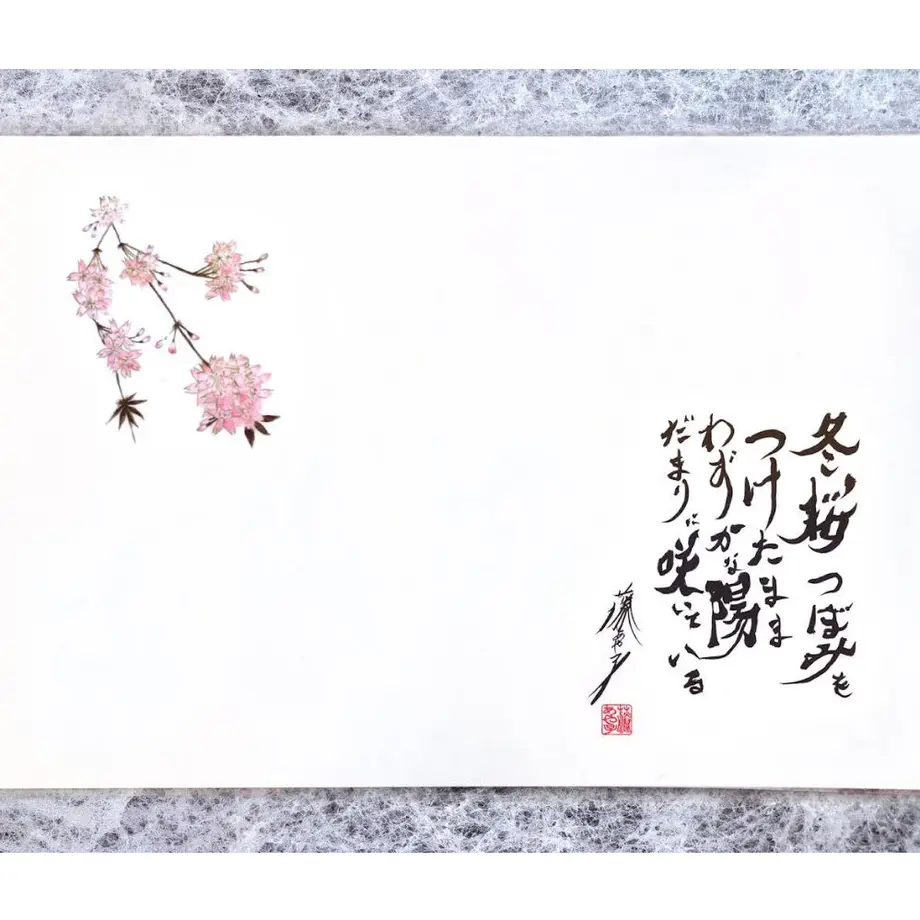 冬桜つぼみを
つけたまま
わずかな陽
だまりに咲いている